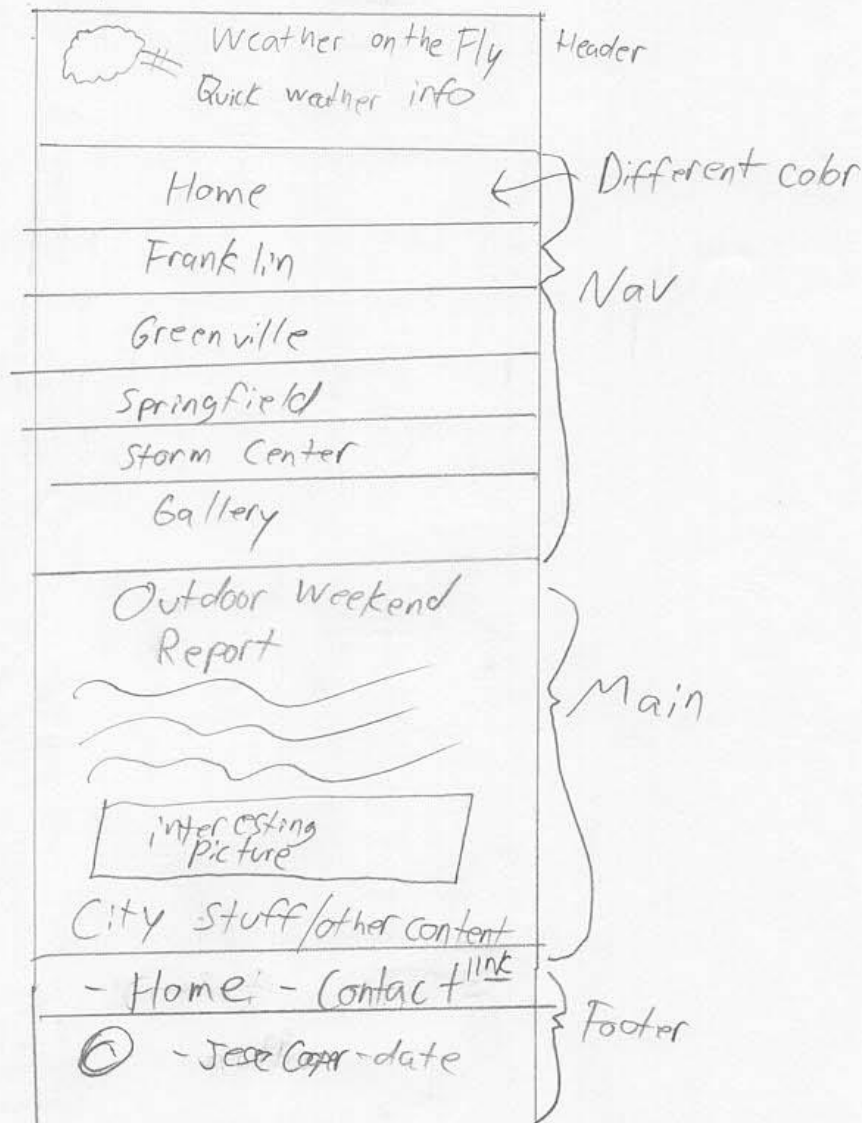 Weather on the Fly
Header
Quick weather info
Home
Different color
Franklin
Nav
Greenville
Springfield
Storm Center
Gallery
Outdoor Weekend
Report
Main
interesting
Picture
City Stuff/other content
- Home - Contact link
Footer
© - Jesse Cooper - date